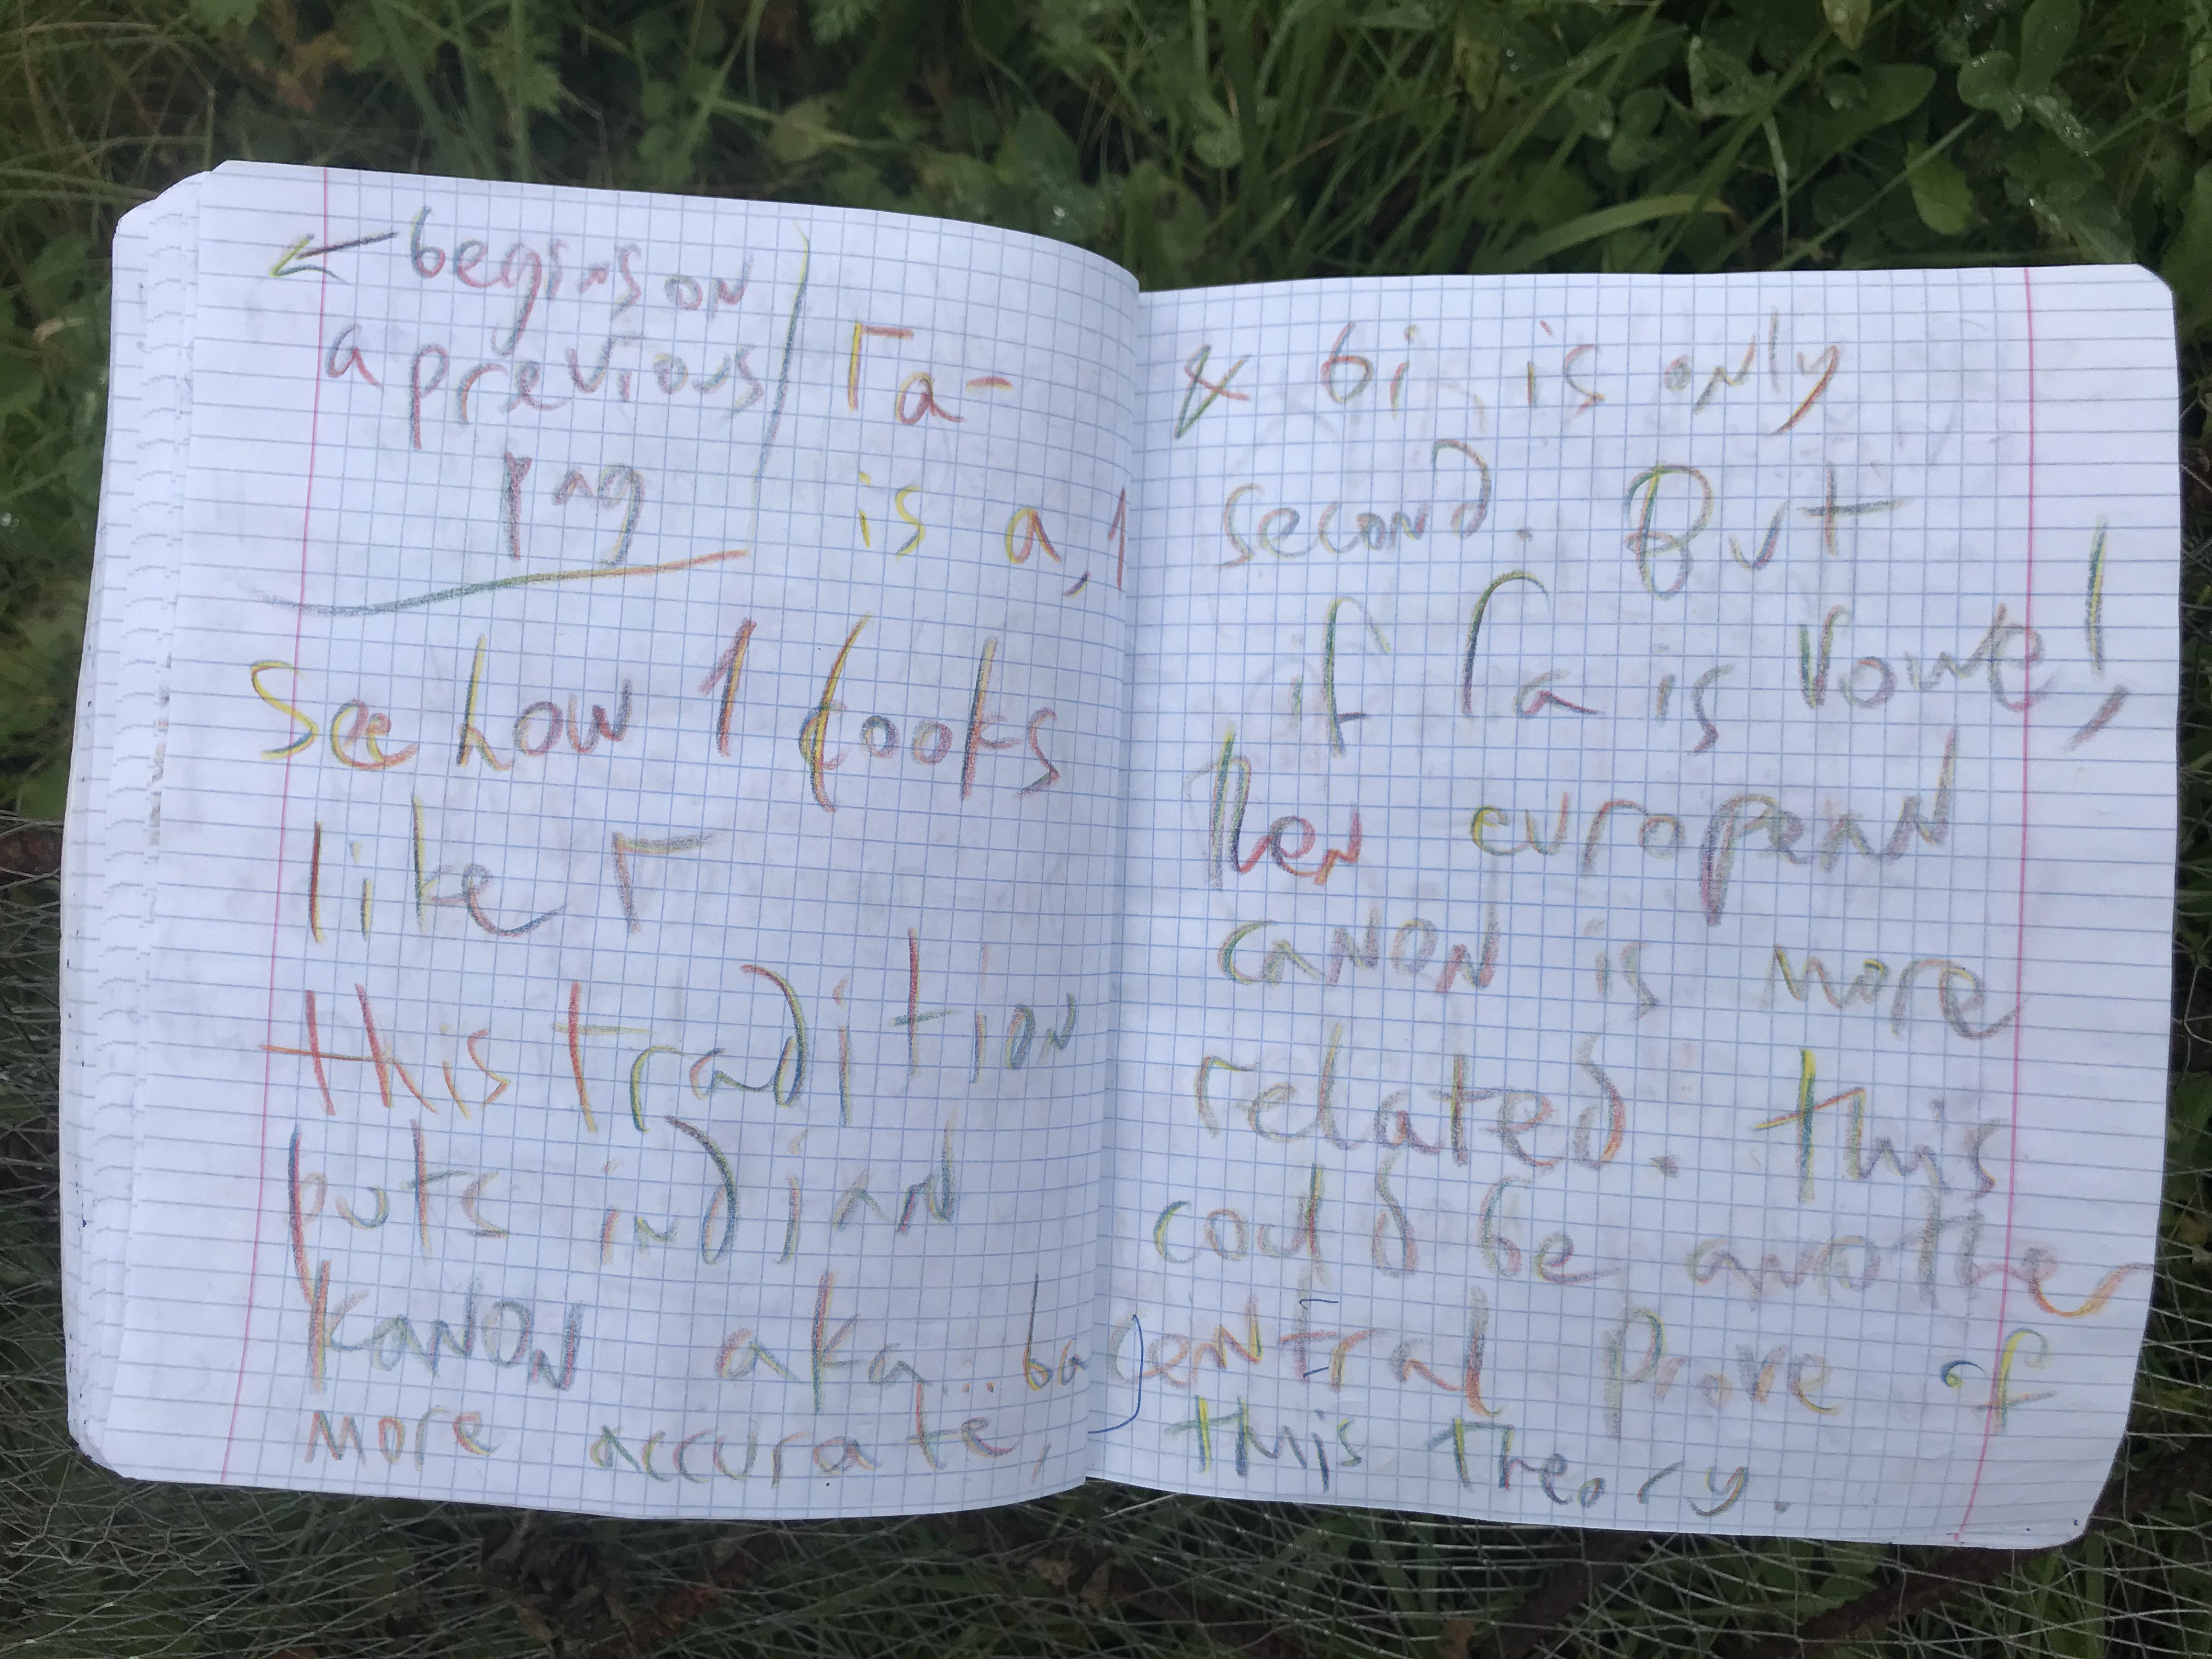 ← begins on
a previous
pag
Га-
is a, 1
See how 1 looks
like Г
this tradition
puts indian
kanon aka... ba
more accurate,
& bi is only
second. But
if Га is
then european
canon is more
related. this
could be another
central prove of
this theory.